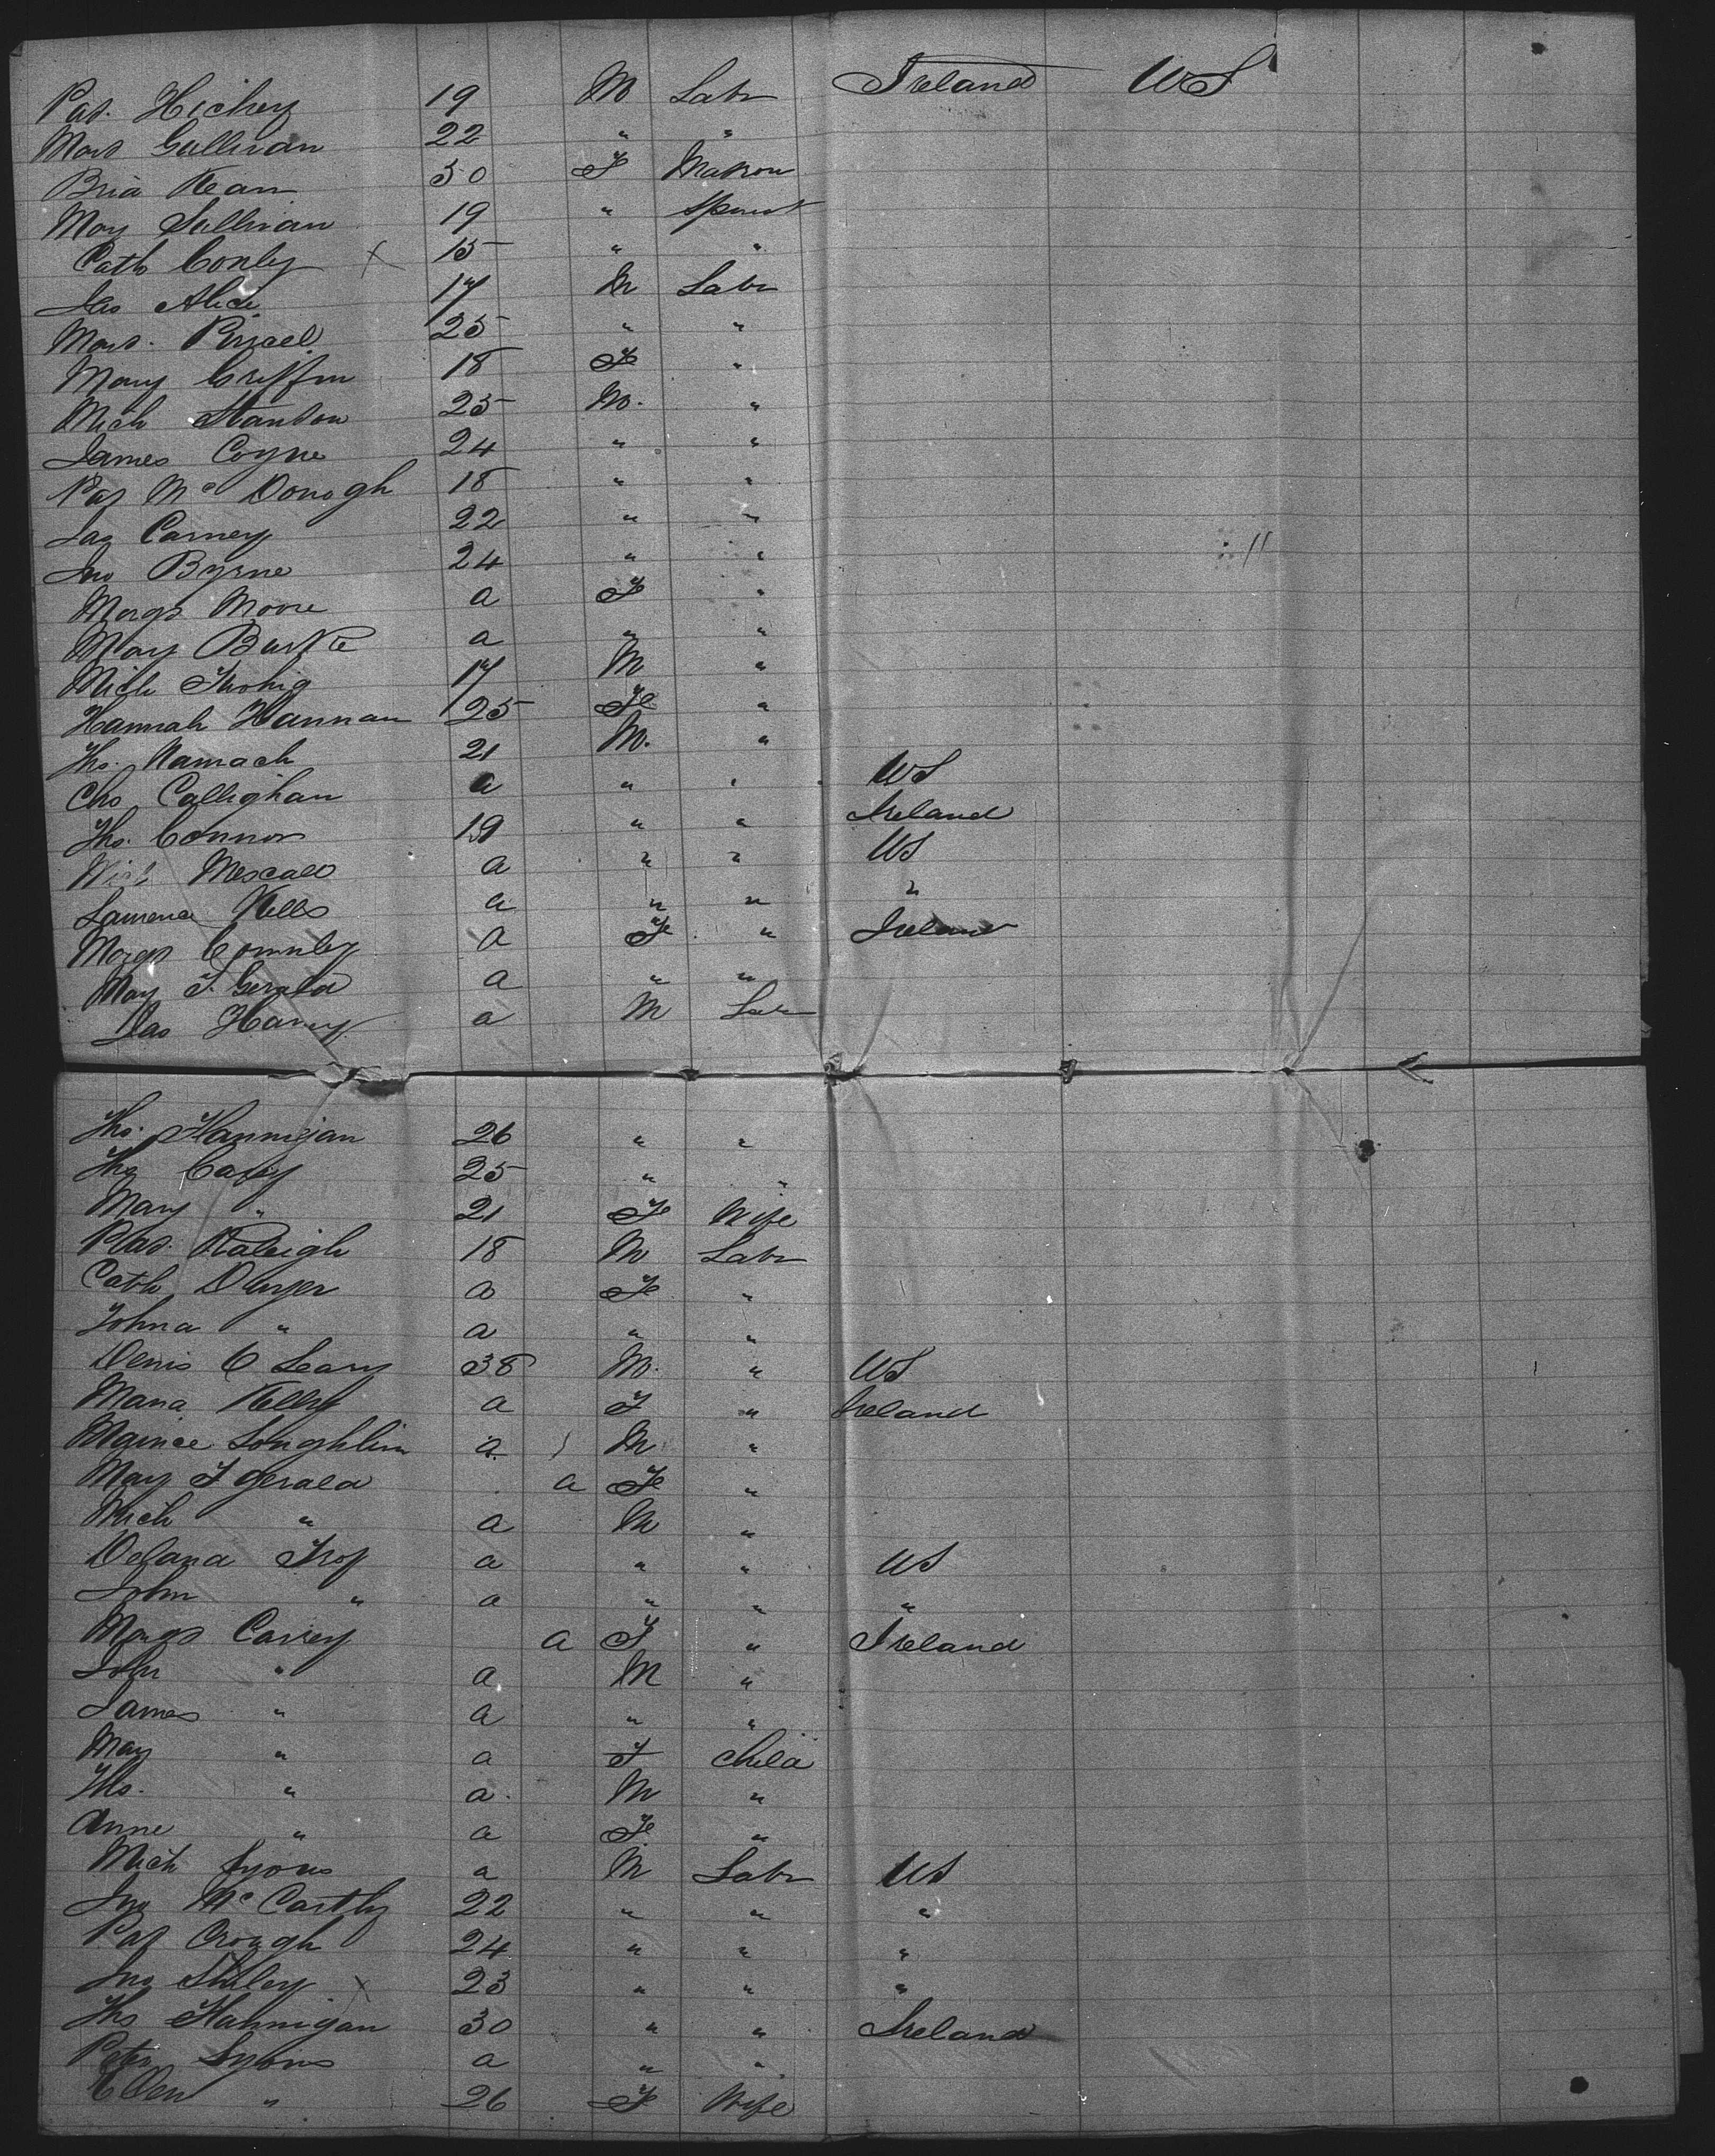 Pat. Hickey 19 M Labr Ireland US
Mort Sullivan 22 " "
Kean 30 F Matron
Mary Sullivan 19 " Spinst
Cath Conley x 15 " "
Jas 17 M Labr
Mort. 25 " "
Mary Griffin 18 F "
Mich Stanton 25 M. "
James Coyne 24 " "
Pat Mc Donogh 18 " "
Jas Carney 22 " "
Jno Byrne 24 " "
Margt Moore a F "
Mary Burke a " "
Mich 17 M "
Hannah Hannan 25 F "
Tho. 21 M. "
Chs Callighan a " " US
Tho. Connor 19 " " Ireland
Mescall a " " US
Laurence Kells a " " "
Margt a F " Ireland
Mary F. Gerald a " "
Jas a M Labr
Tho. Hannigan 26 " "
Tho Casey 25 " "
Mary " 21 F Wife
Pat. Raleigh 18 M Labr
Cath Dwyer a F "
Johna " a " "
Denis O Leary 38 M. " US
Maria Kelly a F " Ireland
Loughlin a. M "
Mary F gerald a F "
Mich " a M "
Delana Troy a " " US
John " a " " "
Margt Carrey a F " Ireland
John " a M "
James " a " "
Mary " a F Child
Tho. " a. M "
Anne " a F "
Mich Lyons a M Labr US
Jno Mc Carthy 22 " " "
Pat Crough 24 " " "
Jno x 23 " " "
Tho Hannigan 30 " " Ireland
Peter Lyons a " "
Ellen " 26 F Wife